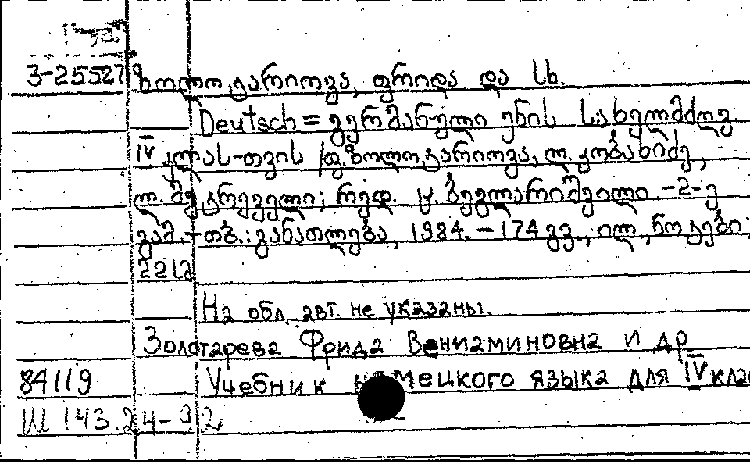 3-25527 ზოლოტარიოვა, ფრიდა და სხ.
Deutsch = გერმანული ენის სახელმძღვ.
IV კლას-თვის / ფ. ზოლოტარიოვა, ლ. კობახიძე,
ლ. მეტრეველი; რედ. ბეგლარიშვილი. - 2-ე
გამ. - თბ.: განათლება, 1984. - 174 გვ., ილ., ნოტები
2212
На обл. авт. не указаны.
Золотарева Фрида Вениаминовна и др
84119 Учебник немецкого языка для IV клас
Ш 143.24-92